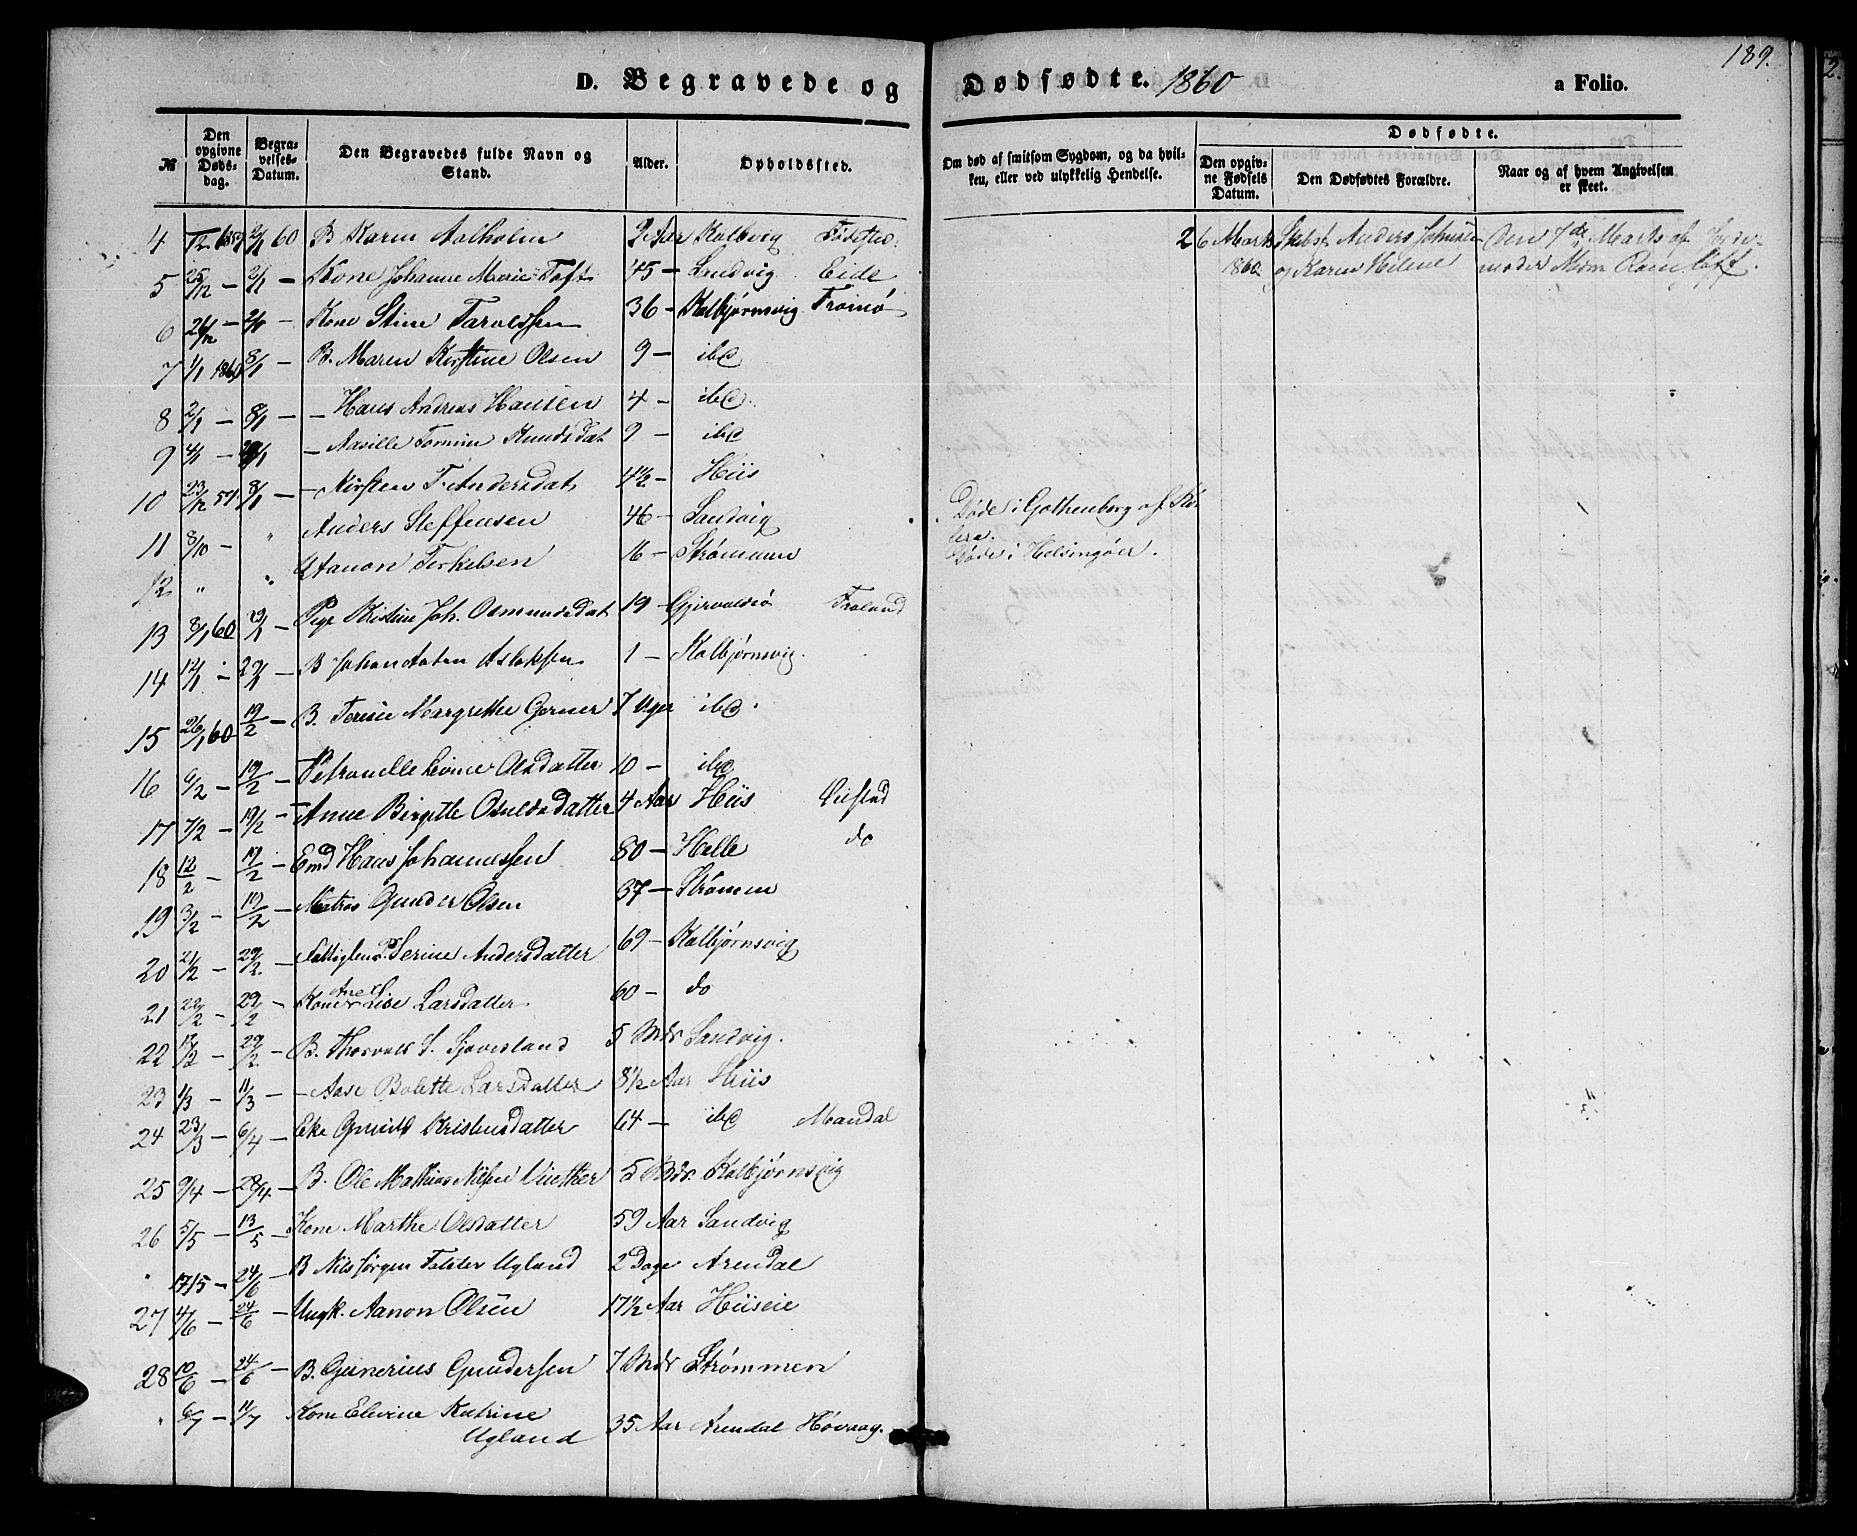 189.
D. Begravede og Dødfødte. 1860 a Folio.
№ Den opgivne Dødsdag. Begravelses-Datum. Den Begravedes fulde Navn og Stand. Alder. Opholdssted. Om død af smitsom Sygdom, og da hvilken, eller ved ulykkelig Hendelse. Dødfødte. Den opgivne Fødsels Datum. Den Dødfødtes Forældre. Naar og af hvem Angivelsen er skeet.
4 2/1 60 B Karen Aalholm 2 Aar Kalbvig Fødested. 2 6 Marts Anders og Den 7de Marts af Jorde-
1860 Karen Helene moder Mdm
5 25/12 — 2/1 — Kone Johanne Marie Toft 45 — Sandvig Eide
6 26/12 — 2/1 — Kone Stine Taraldsen 36 — Kalbjørnsvig Tromø
7 1/1 1860 8/1 — B. Maren Kirstine Olsen 9 — ibd
8 2/1 — 8/1 — — Hans Andreas Hansen 4 — ibd.
9 4/1 — — Knudsdat 9 — ibd
10 23/12 59 8/1 — — Kirsten T. Andersdat 4 1/2 — Hiis
11 8/10 — " Anders Steffensen 46 — Sandvig Døde i Gothenborg af Ko-
lera.
12 " " Aanon Terkelsen 16 — Strømmen Døde i Helsingöer.
13 8/1 60 29/1 — Pige Kristine Joh. Osmundsdat 19 — Froland
14 12/1 — 29/1 — B Johan Anton Aslaksen 1 — Kalbjørnsvig.
15 26/1 60 19/2 — B. Terese Margrethe Gerner 7 Uger ibd.
16 6/2 — 19/2 — Petronelle Lovine Olsdatter 10 — ibd
17 7/2 — 19/2 — Anne Birgitte Osuldsdatter 4 Aar Hiis Øiestad
18 12/2 — 19/2 — Emd Hans Johannessen 80 — Helle do
19 3/2 — 19/2 — Matros Gunder Olsen 37 — Strømen
20 21/2 — 29/2. — Fattiglem Serine Andersdatter 69 — Kalbjørnsvig
21 22/2 — 29/2 — Kone Ane Lise Larsdatter. 60 — do
22 17/2 — 29/2. — B. Thorvald S. Sjaveland 5 Mdr Sandvig.
23 1/3 — 11/3 — — Aase Bolette Larsdatter 8 1/2 Aar Hiis
24 23/3 — 6/4 — Eke Gunild Kristensdatter 64 — ibd Mandal
25 9/4 — 28/4 — B. Ole Mathias Nilsen 5 Mdr. Kalbjørnsvig
26 5/5 — 13/5 — Kone Marthe Olsdatter 59 Aar Sandvig
" 17/5 — 24/6 B Nils Jørgen Ugland 2 Dage Arendal
27 4/6 — 24/6 — Ungk. Aanon Olsen 17 1/2 Aar Hiiseie
28 10/6 — 24/6 — B. Gunerius Gundersen 7 Mdr Strømmen
" 6/7 — 11/7 Kone Elevine Katrine
Ugland 35 Aar Arendal Høvaag.